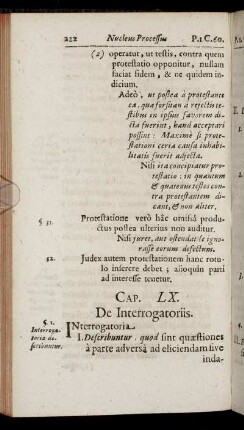 222 Nucleus Processus P. 1 C. 60.
(2) operatur, ut testis, contra quem
protestatio opponitur, nullam
faciat fidem, & ne quidem in-
dicium.
Adeò, ut postea à protestante
ea, qua forsitan à rejectis te-
stibus in ipsius favorem di-
cta fuerint, haud acceptari
possint: Maximè si prote-
stationi certa causa inhabi-
litatis fuerit adjecta.
Nisi ita concipiatur pro-
testatio: in quantum
& quatenus testes con-
tra protestantem di-
cant, & non aliter.
§ 51. Protestatione verò hâc omissâ produ-
ctus postea ulterius non auditur.
Nisi juret, aut ostendat se igno-
rasse eorum defectum.
52. Judex autem protestationem hanc rotu-
lo inserere debet; alioquin parti
ad interesse tenetur.
CAP. LX.
De Interrogatoriis.
§. 1.
Interroga-
toria de-
scribuntur.
INterrogatoria.
I. Describuntur, quod sint quæstiones
à parte adversa ad eliciendam sive
inda-